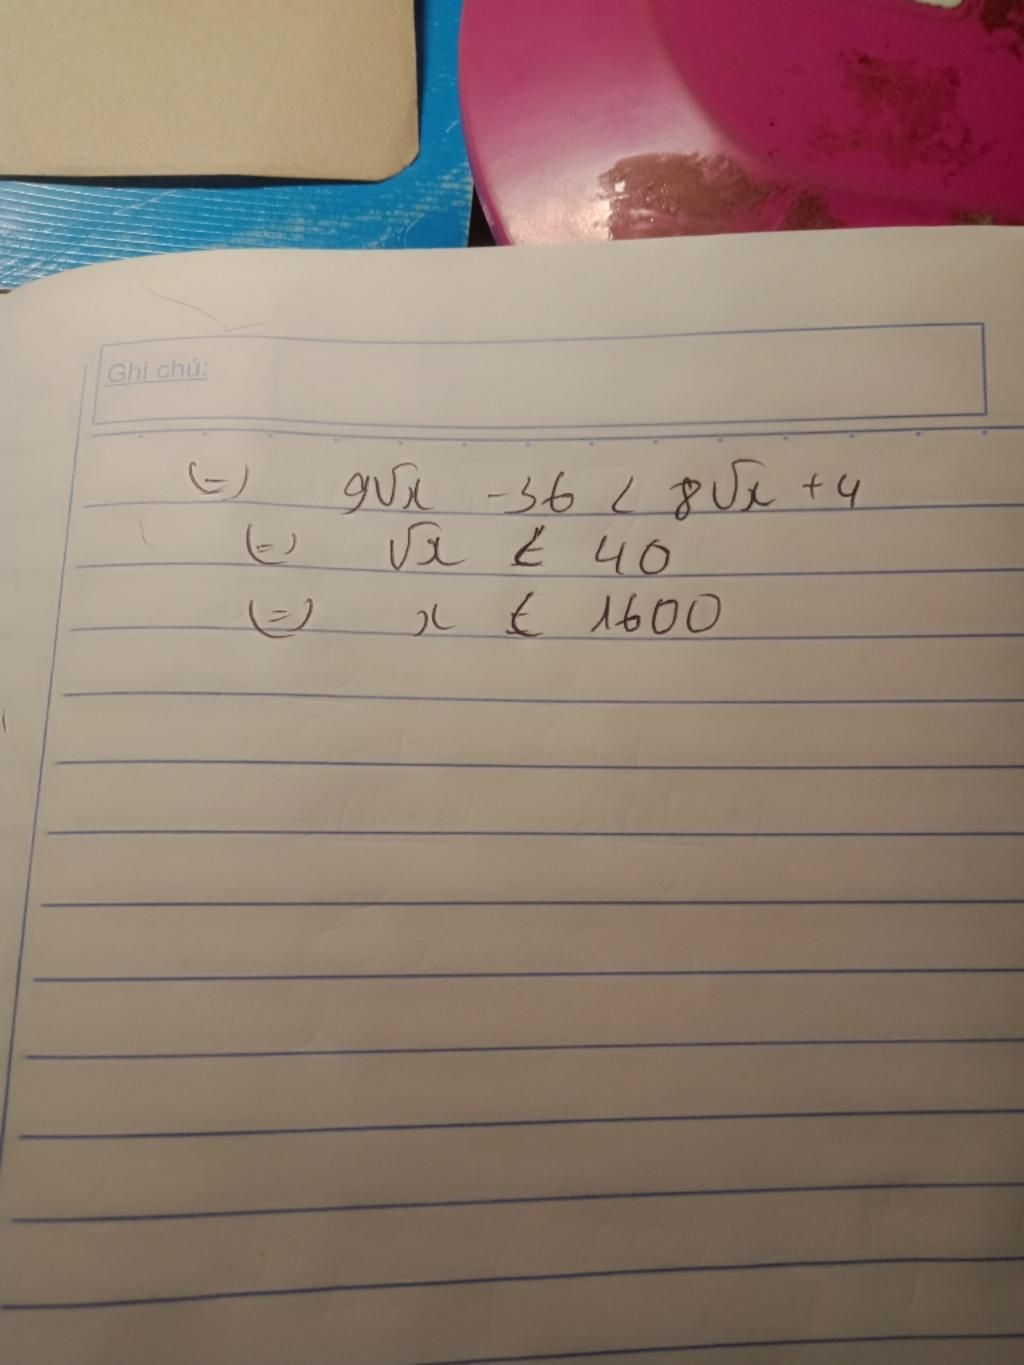 Ghi chú:
(=) 9√x - 36 < 8√x + 4
(=) √x < 40
(=) x < 1600